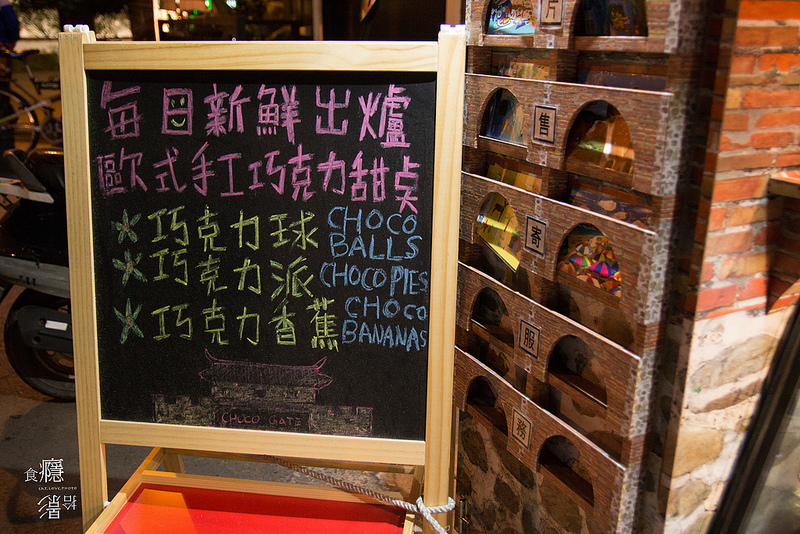 每日新鮮出爐
歐式手工巧克力甜点
巧克力球 CHOCO BALLS
巧克力派 CHOCO PIES
巧克力香蕉 CHOCO BANANAS
CHOCO GATE
片
售
寄
服
務
食癮
EAT.LOVE.PHOTO
拾影